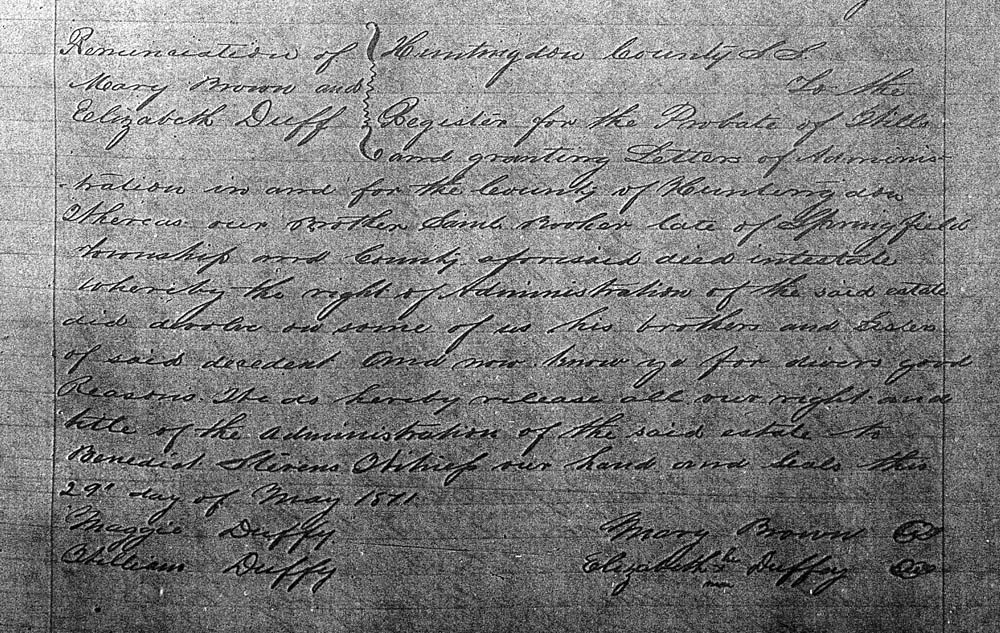 Renunciation of
Mary Brown and
Elizabeth Duff
Huntingdon County S S.
To the
Register for the Probate of Wills
and granting Letters of Adminis-
-tration in and for the County of Huntingdon
Whereas our Brother Saml Booker late of Springfield
Township and County aforisaid died intestate
whereby the right of Administration of the said estate
did devolve on some of us his brothers and Sisters
of said decedent And now know ye for divers good
Reasons. We do hereby release all our right and
title of the administration of the said estate to
Benedict Stevens Witness our hand and Seals this
29th day of May 1871.
Maggie Duffy
William Duffy
Mary Brown
Elizabeth Duffey